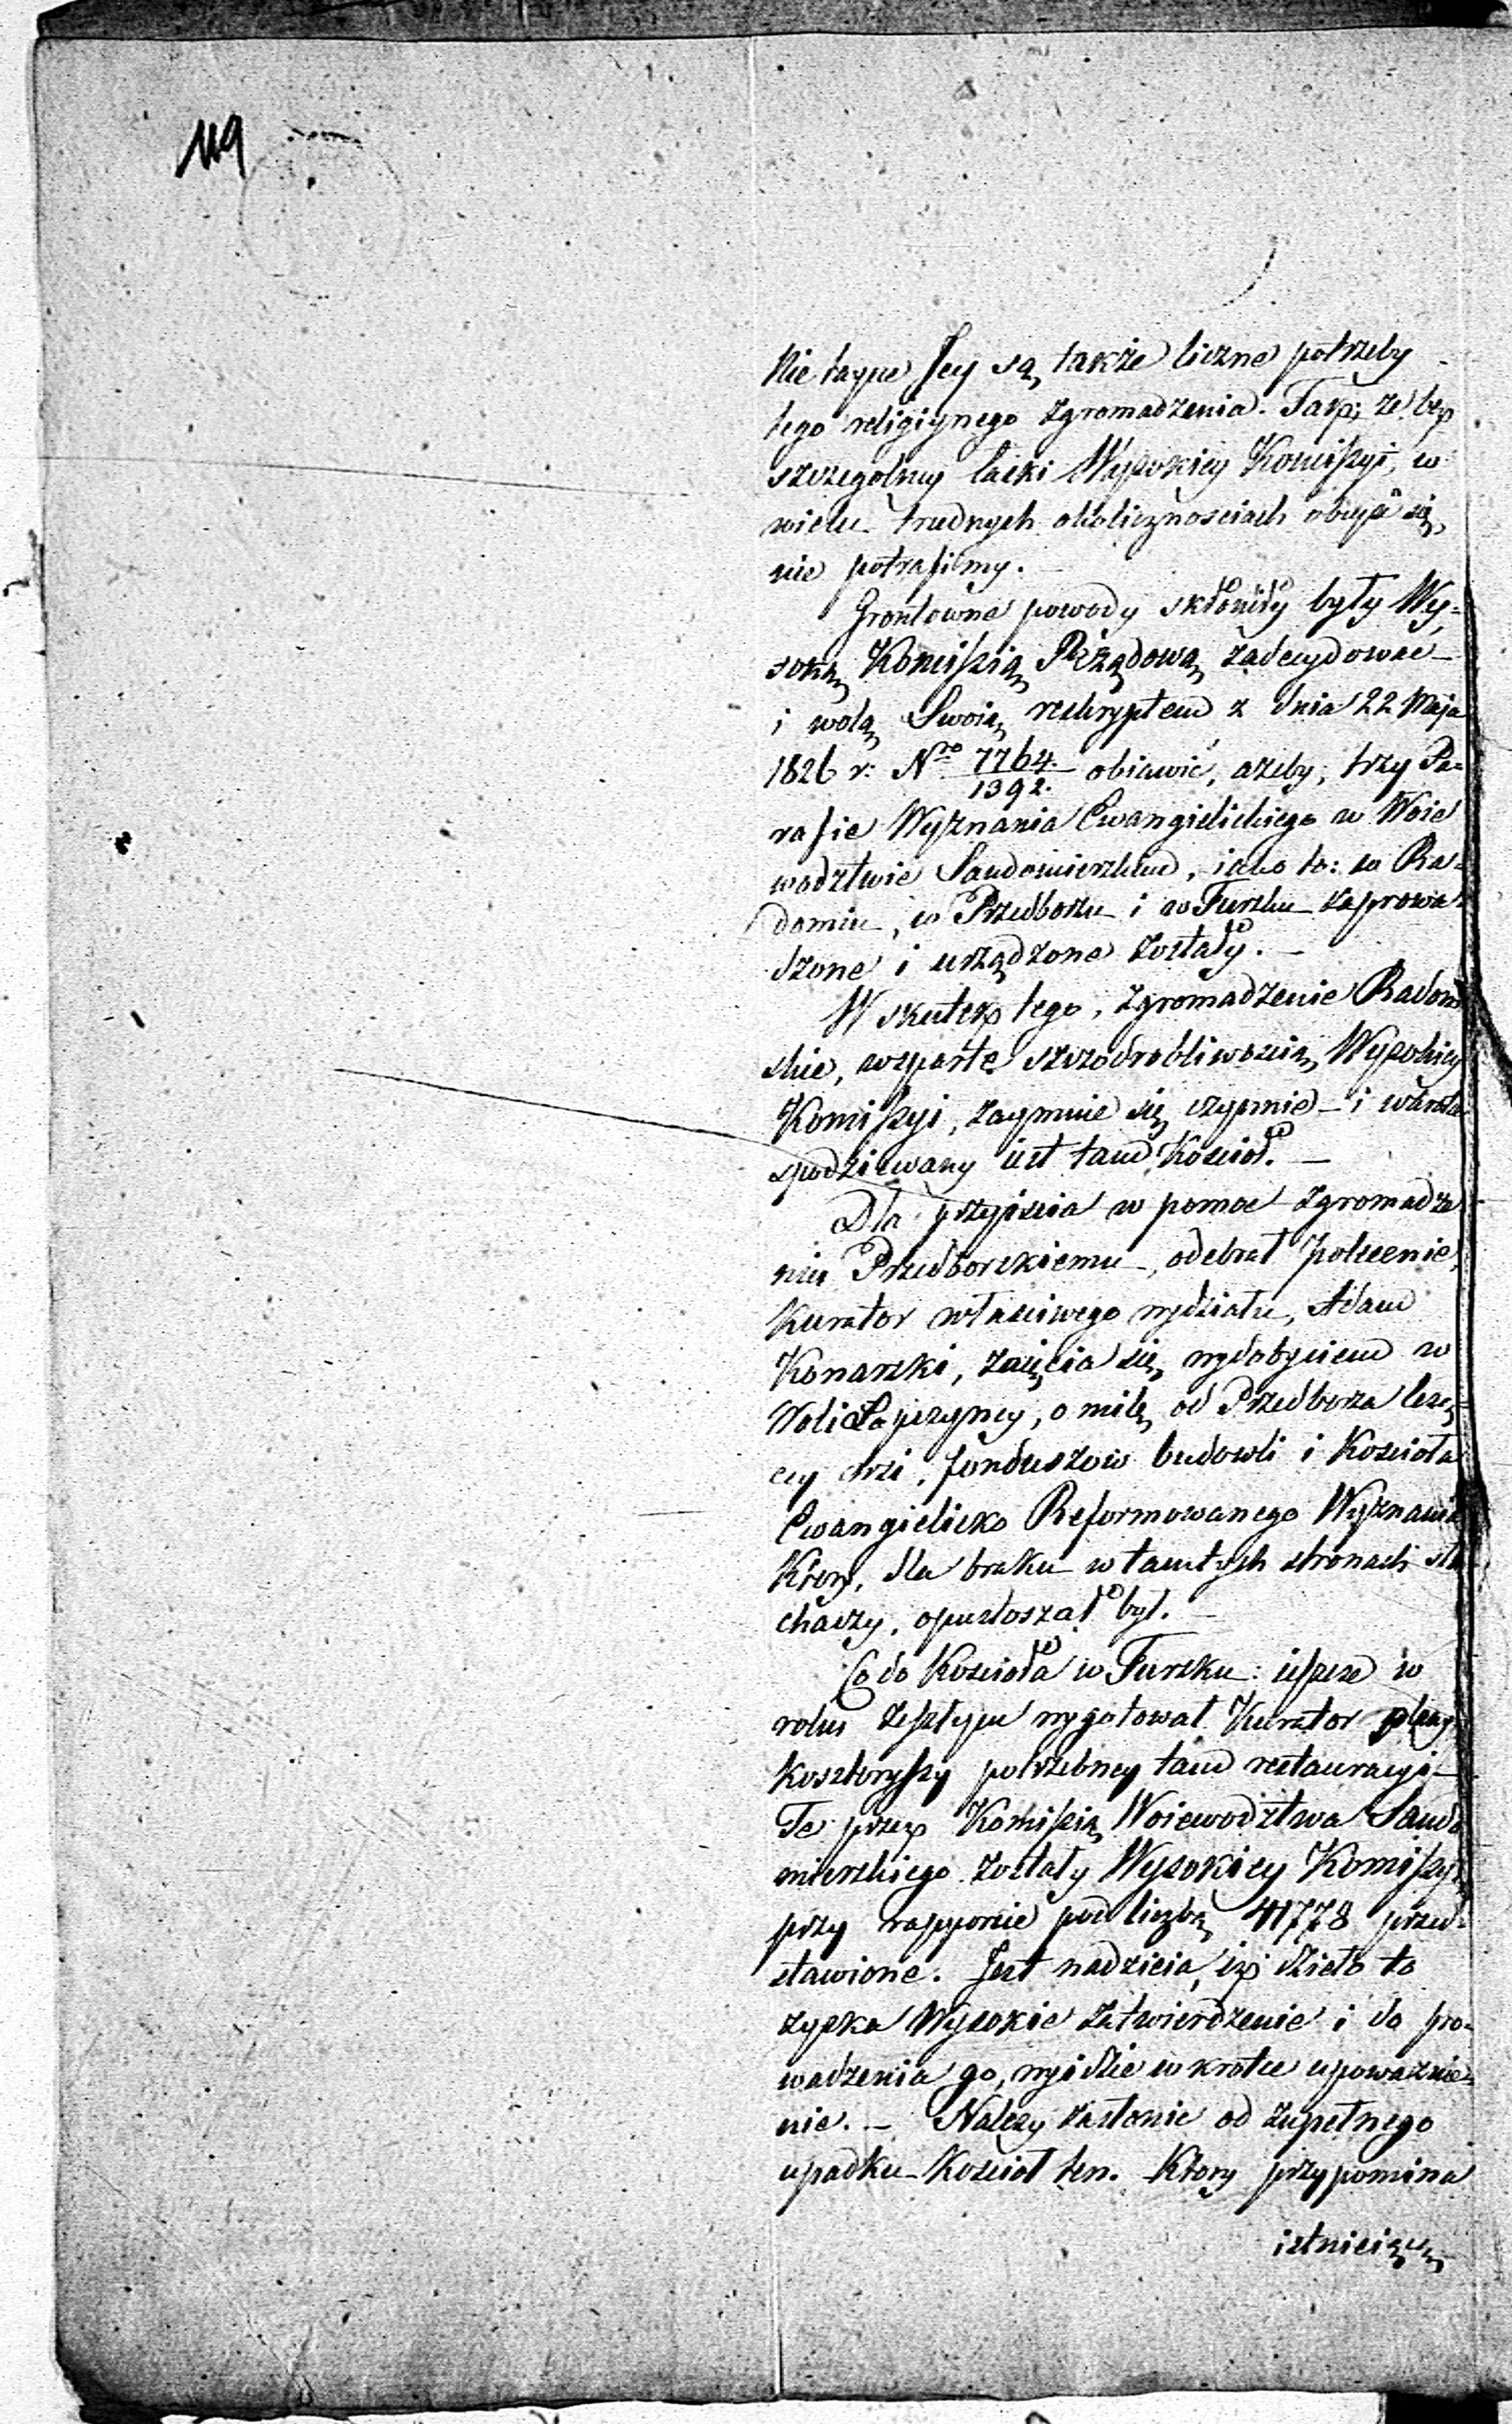 119
Nie tayne Jey są także liczne potrzeby
tego religiynego zgromadzenia. Tak, że bez
szczegolney łaski Wysokiey Kommissyi, w
wielu trudnych okolicznosciach obeyść się
nie potrafimy.
Grontowne powody skłoniły były Wy=
soką Kommissią Rządową zadecydować
i wolą Swoią reskryptem z dnia 22 Maja
1826 r: Nro 7764./1392. obiawić, ażeby, trzy Pa=
rafie Wyznania Ewangielickiego w Woie
wodztwie Sandomierskim, iako to: w Ra=
domiu, w Przedborzu i w Tursku zaprowa=
dzone i urządzone zostały. —
W skutek tego, zgromadzenie Radom
skie, wsparte szczodrobliwoscią Wysokiey
Komissyi, zaymuie się czynnie i wkrotce
spodziewany iest tam Kościoł. —
Dla przyiscia w pomoc zgromadze
niu Przedborskiemu, odebrał polecenie,
Kurator własciwego wydziału, Adam
Konarski, zaięcia się wydobyciem w
Woli Łapczyney, o milę od Przedborza leżą=
cey wsi, funduszow budowli i Koscioła
Ewangielicko Reformowanego Wyznania
Ktory, dla braku w tamtych stronach słu
chaczy, opustoszał był.
Co do Koscioła w Tursku: ieszcze w
roku zeszłym wygotował Kurator plany
kosztoryssy potrzebney tam restauracyi —
Te przez Komissią Woiewodztwa Sando
mierskiego zostały Wysokiey Komissyi
przy rapporcie pod liczbą 41778 przed=
stawione. Jest nadzieia, iż dzieło to
zyska Wysokie zatwierdzenie i do pro=
wadzenia go, wyidzie w krotce upoważnie=
nie. — Należy zasłonić od zupełnego
upadku Kościoł ten. Ktory przypomina
istnieiącą